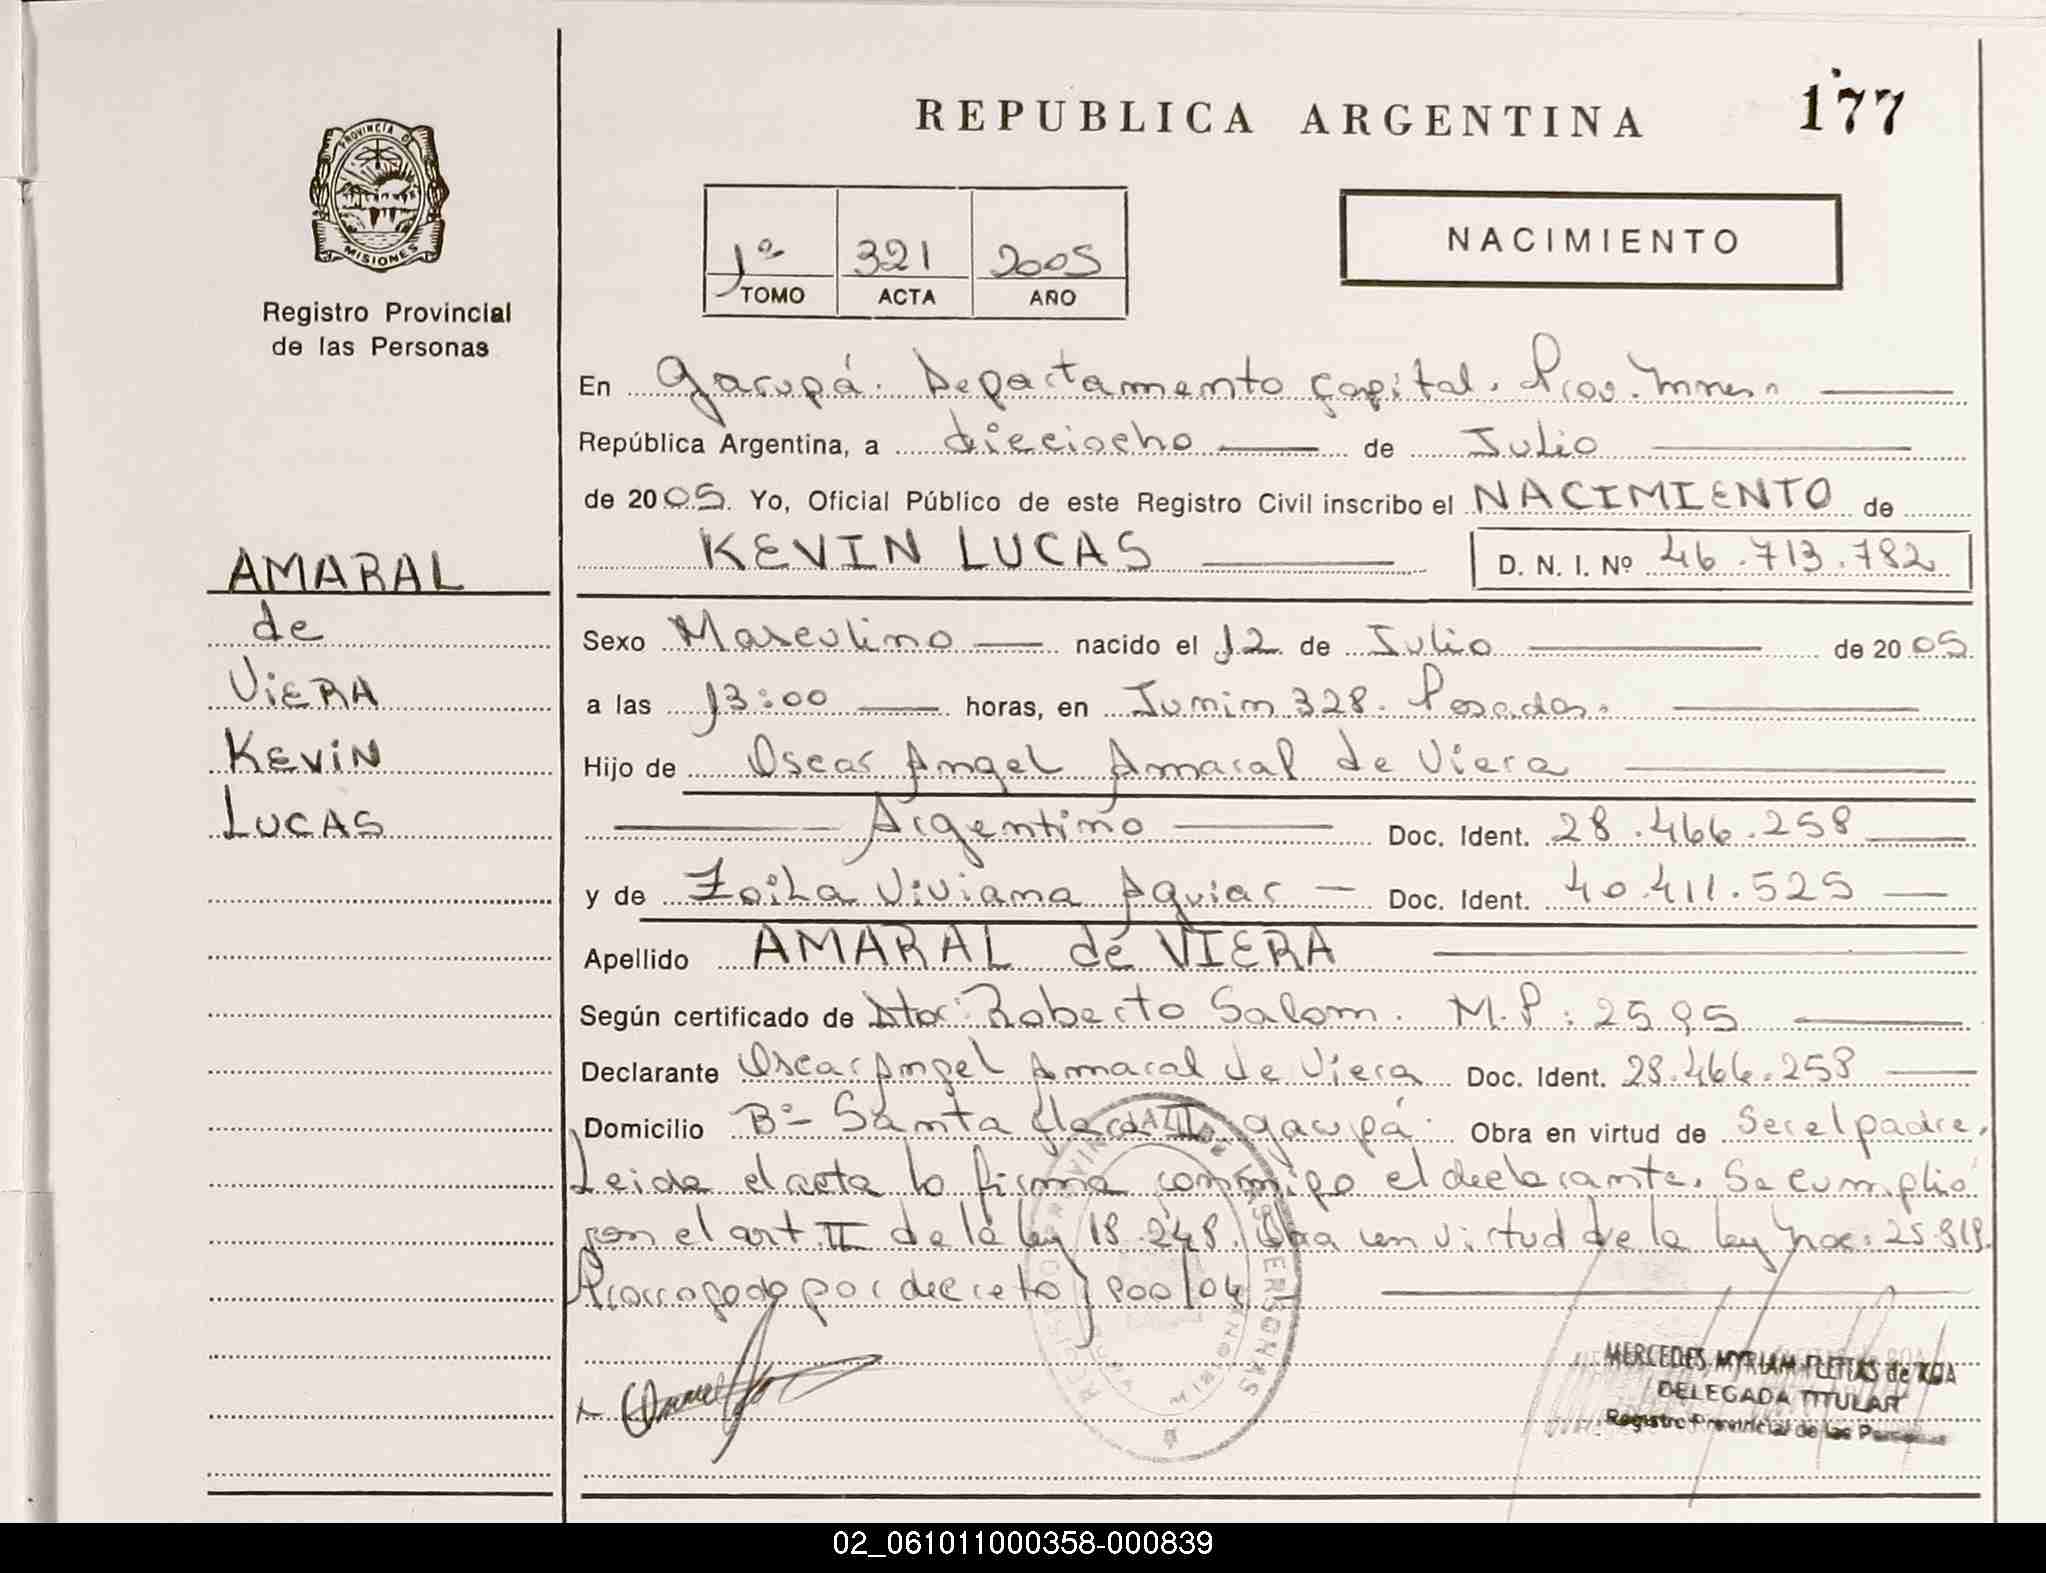 REPUBLICA ARGENTINA
177
PROVINCIA DE
MISIONES
Registro Provincial
de las Personas
1º 321 2005
TOMO ACTA AÑO
NACIMIENTO
En Garupá. Departamento Capital. Prov. Mnes.
República Argentina, a dieciocho de Julio
de 2005. Yo, Oficial Público de este Registro Civil inscribo el NACIMIENTO de
KEVIN LUCAS D. N. I. Nº 46.713.782
AMARAL
de
VIERA
KEVIN
LUCAS
Sexo Masculino nacido el 12 de Julio de 2005
a las 13:00 horas, en Junin 328. Posadas.
Hijo de Oscar Angel Amaral de Viera
Argentino Doc. Ident. 28.466.258
y de Zoila Viviana Aguiar Doc. Ident. 40.411.525
Apellido AMARAL de VIERA
Según certificado de Dtor: Roberto Salom. M.P: 2595
Declarante Oscar Angel Amaral de Viera Doc. Ident. 28.466.258
Domicilio Bº Santa Clara II Garupá. Obra en virtud de Ser el padre.
Leida el acta la firma conmigo el declarante. Se cumplió
con el art. II de la ley 18.248. Obra en virtud de la ley nro: 25.819.
Prorrogado por decreto 1900/04
MERCEDES MYRIAM FLEITAS de ROA
DELEGADA TITULAR
Registro Provincial de las Personas
02_061011000358-000839